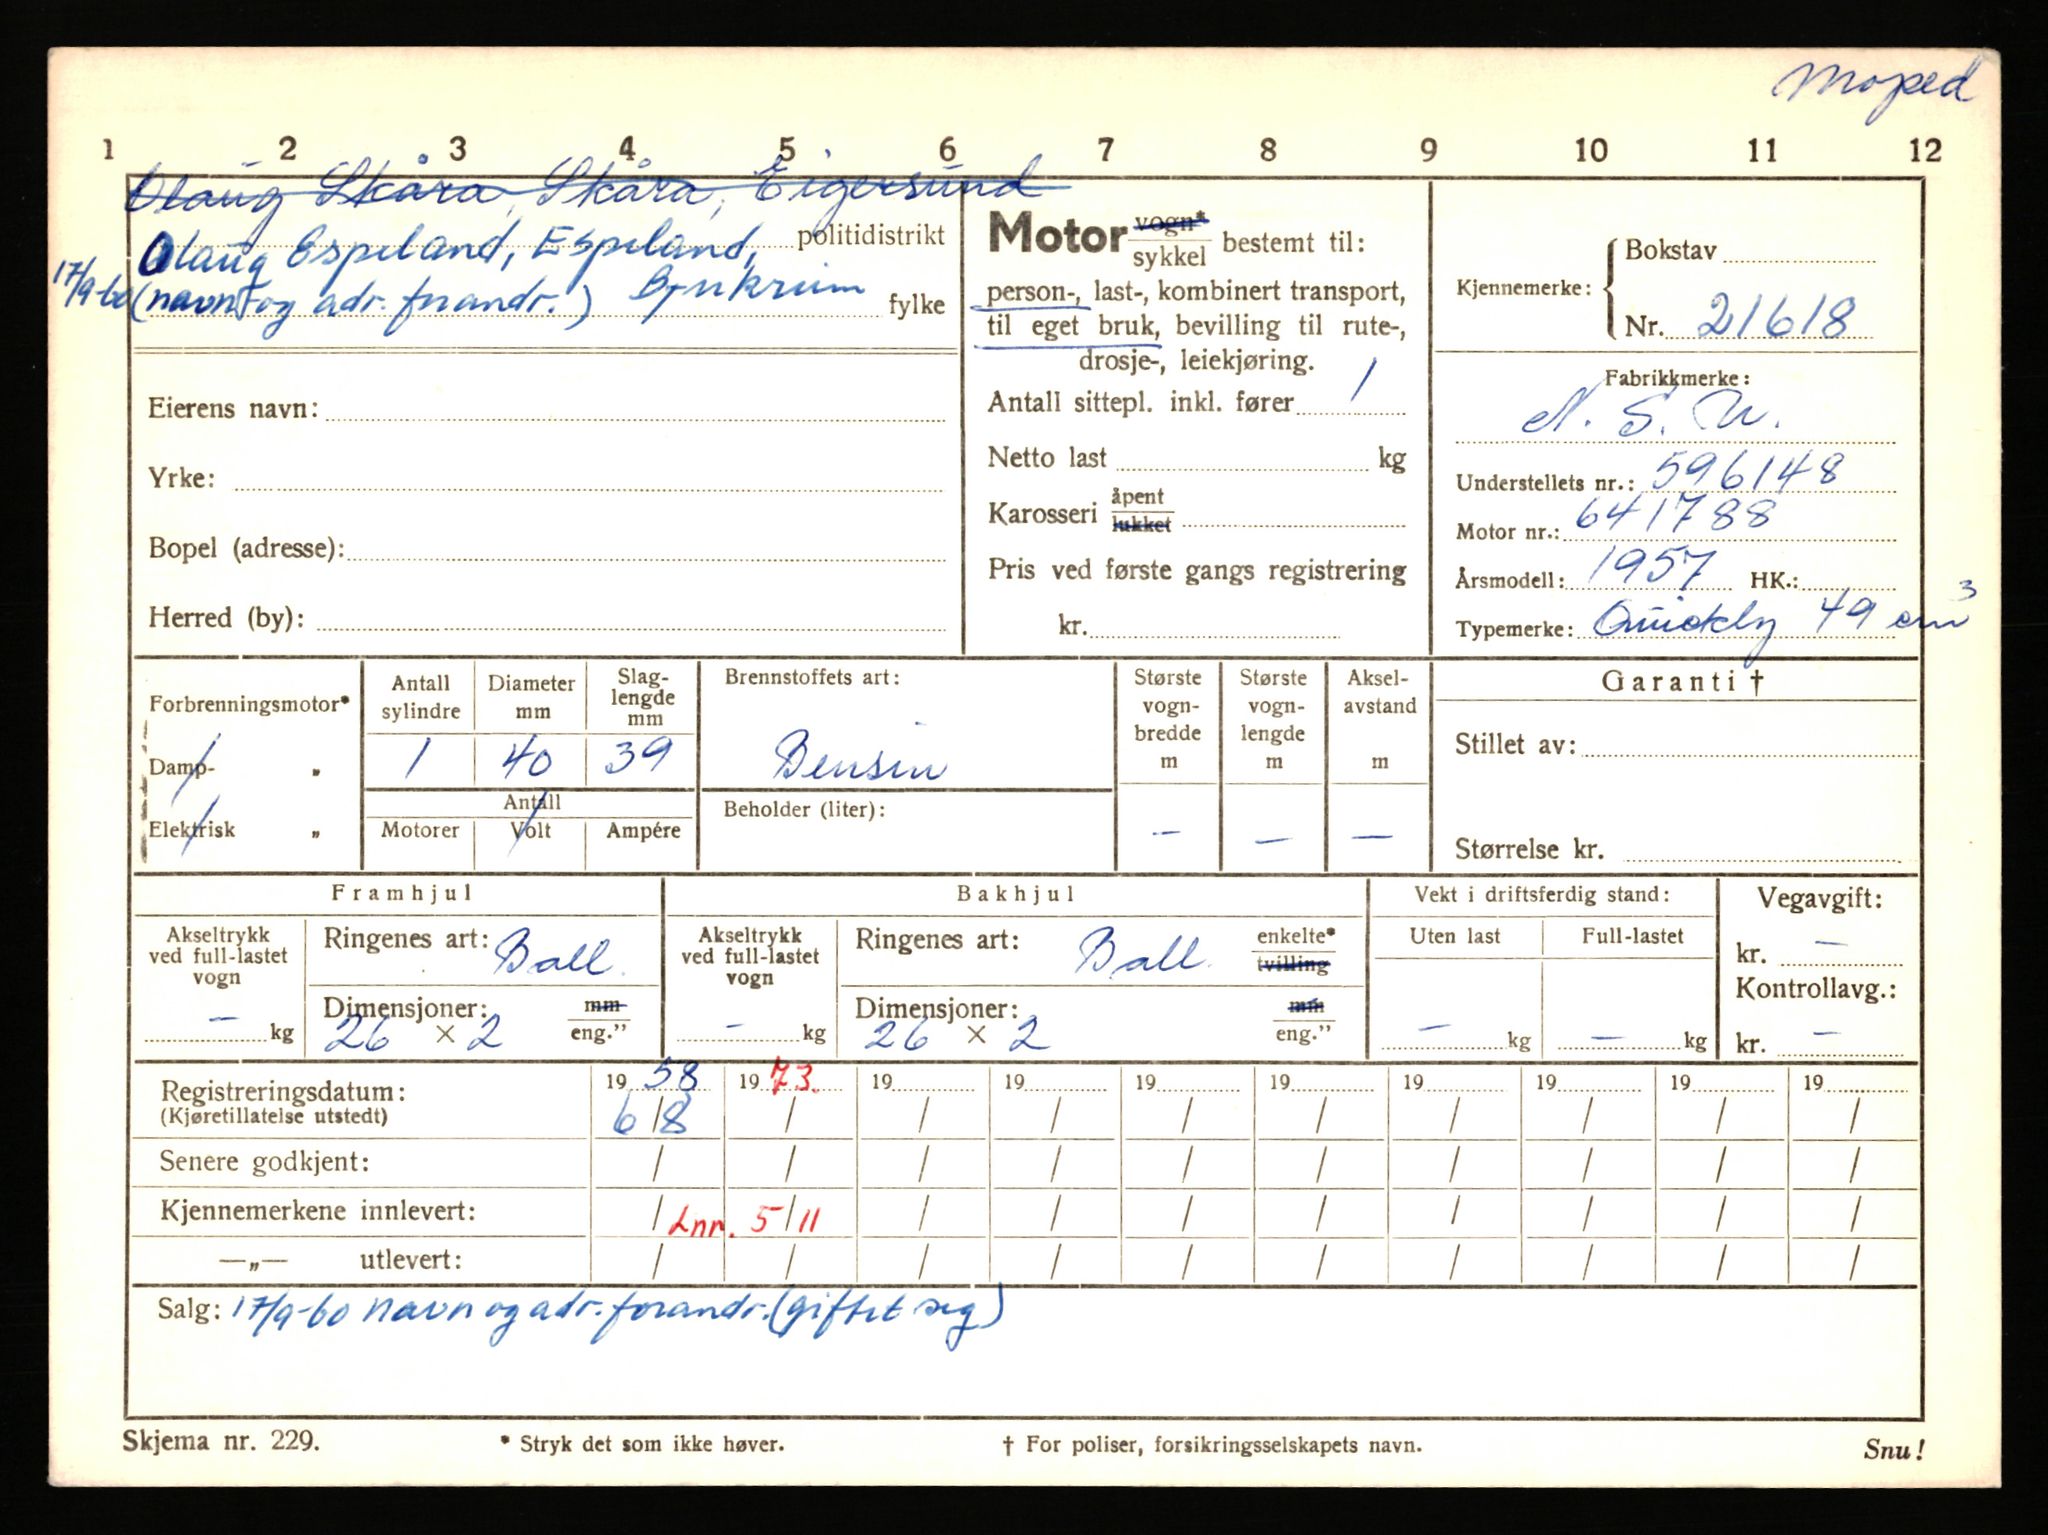 Moped
1 2 3 4 5 6 7 8 9 10 11 12
Olaug Skåra, Skåra, Eigersund
Olaug Espeland, Espeland, politidistrikt
17/9-60 (navn og adr. forandr.) Bjerkreim fylke
Eierens navn:
Yrke:
Bopel (adresse):
Herred (by):
Motor vogn*/sykkel bestemt til:
person-, last-, kombinert transport,
til eget bruk, bevilling til rute-,
drosje-, leiekjøring.
Antall sittepl. inkl. fører 1
Netto last kg
Karosseri åpent/lukket
Pris ved første gangs registrering
kr.
Kjennemerke: Bokstav
Nr. 21618
Fabrikkmerke:
N. S. U.
Understellets nr.: 596148
Motor nr.: 641788
Årsmodell: 1957 HK.:
Typemerke: Quickly 49 cm3
Forbrenningsmotor*
Damp- „
Elektrisk „
Antall sylindre 1
Diameter mm 40
Slag-lengde mm 39
Antall
Motorer Volt Ampére
Brennstoffets art:
Bensin
Beholder (liter):
Største vogn-bredde m –
Største vogn-lengde m –
Aksel-avstand m –
Garanti †
Stillet av:
Størrelse kr.
Framhjul
Akseltrykk ved full-lastet vogn – kg
Ringenes art: Ball.
Dimensjoner: mm/eng."
26 × 2
Bakhjul
Akseltrykk ved full-lastet vogn – kg
Ringenes art: Ball. enkelte*/tvilling
Dimensjoner: mm/eng."
26 × 2
Vekt i driftsferdig stand:
Uten last Full-lastet
– kg – kg
Vegavgift:
kr. –
Kontrollavg.:
kr. –
Registreringsdatum: 19 58 19 73. 19 19 19 19 19 19 19 19
(Kjøretillatelse utstedt) 6/8 / / / / / / / / /
Senere godkjent: / / / / / / / / / /
Kjennemerkene innlevert: / Lnr. 5/11 / / / / / / / /
—„— utlevert: / / / / / / / / / /
Salg: 17/9-60 navn og adr. forandr. (giftet seg)
Skjema nr. 229. * Stryk det som ikke høver. † For poliser, forsikringsselskapets navn. Snu!